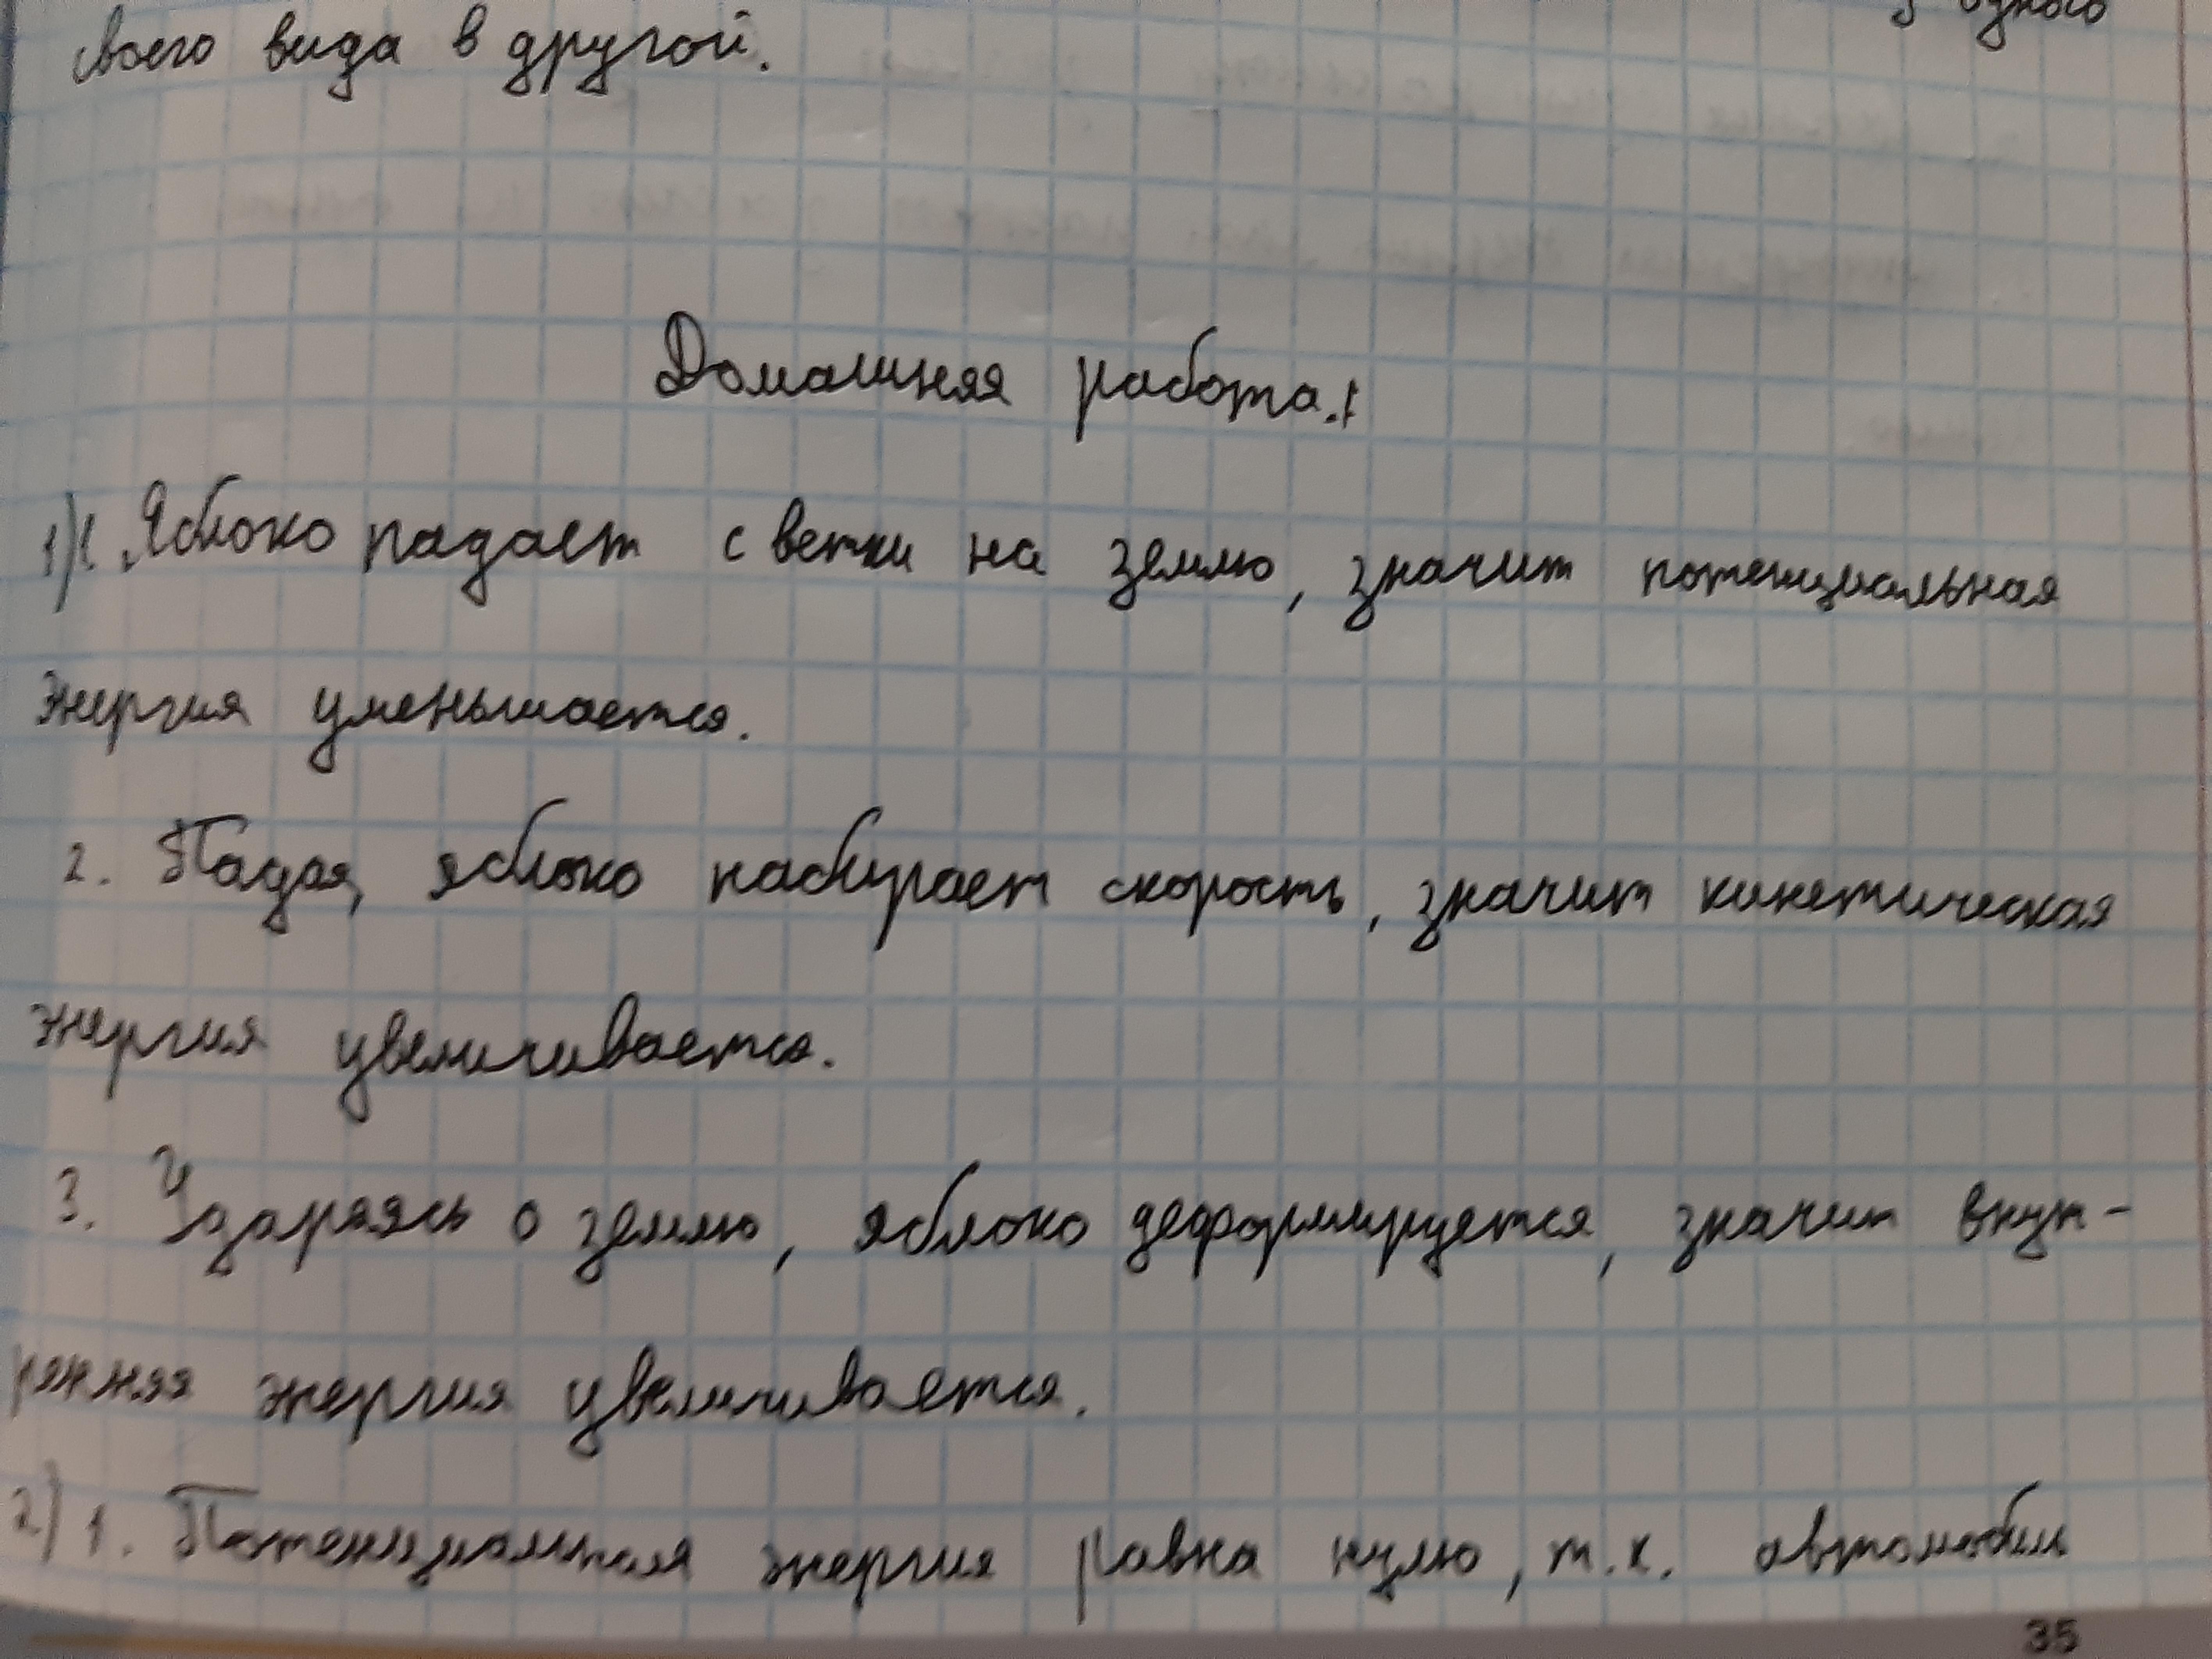 з одного
своего вида в другой.
Домашняя работа.
1) 1. Яблоко падает с ветки на землю, значит потенциальная
энергия уменьшается.
2. Падая, яблоко набирает скорость, значит кинетическая
энергия увеличивается.
3. Ударяясь о землю, яблоко деформируется, значит внут-
ренняя энергия увеличивается.
2) 1. Потенциальная энергия равна нулю, т.к. автомобиль
35